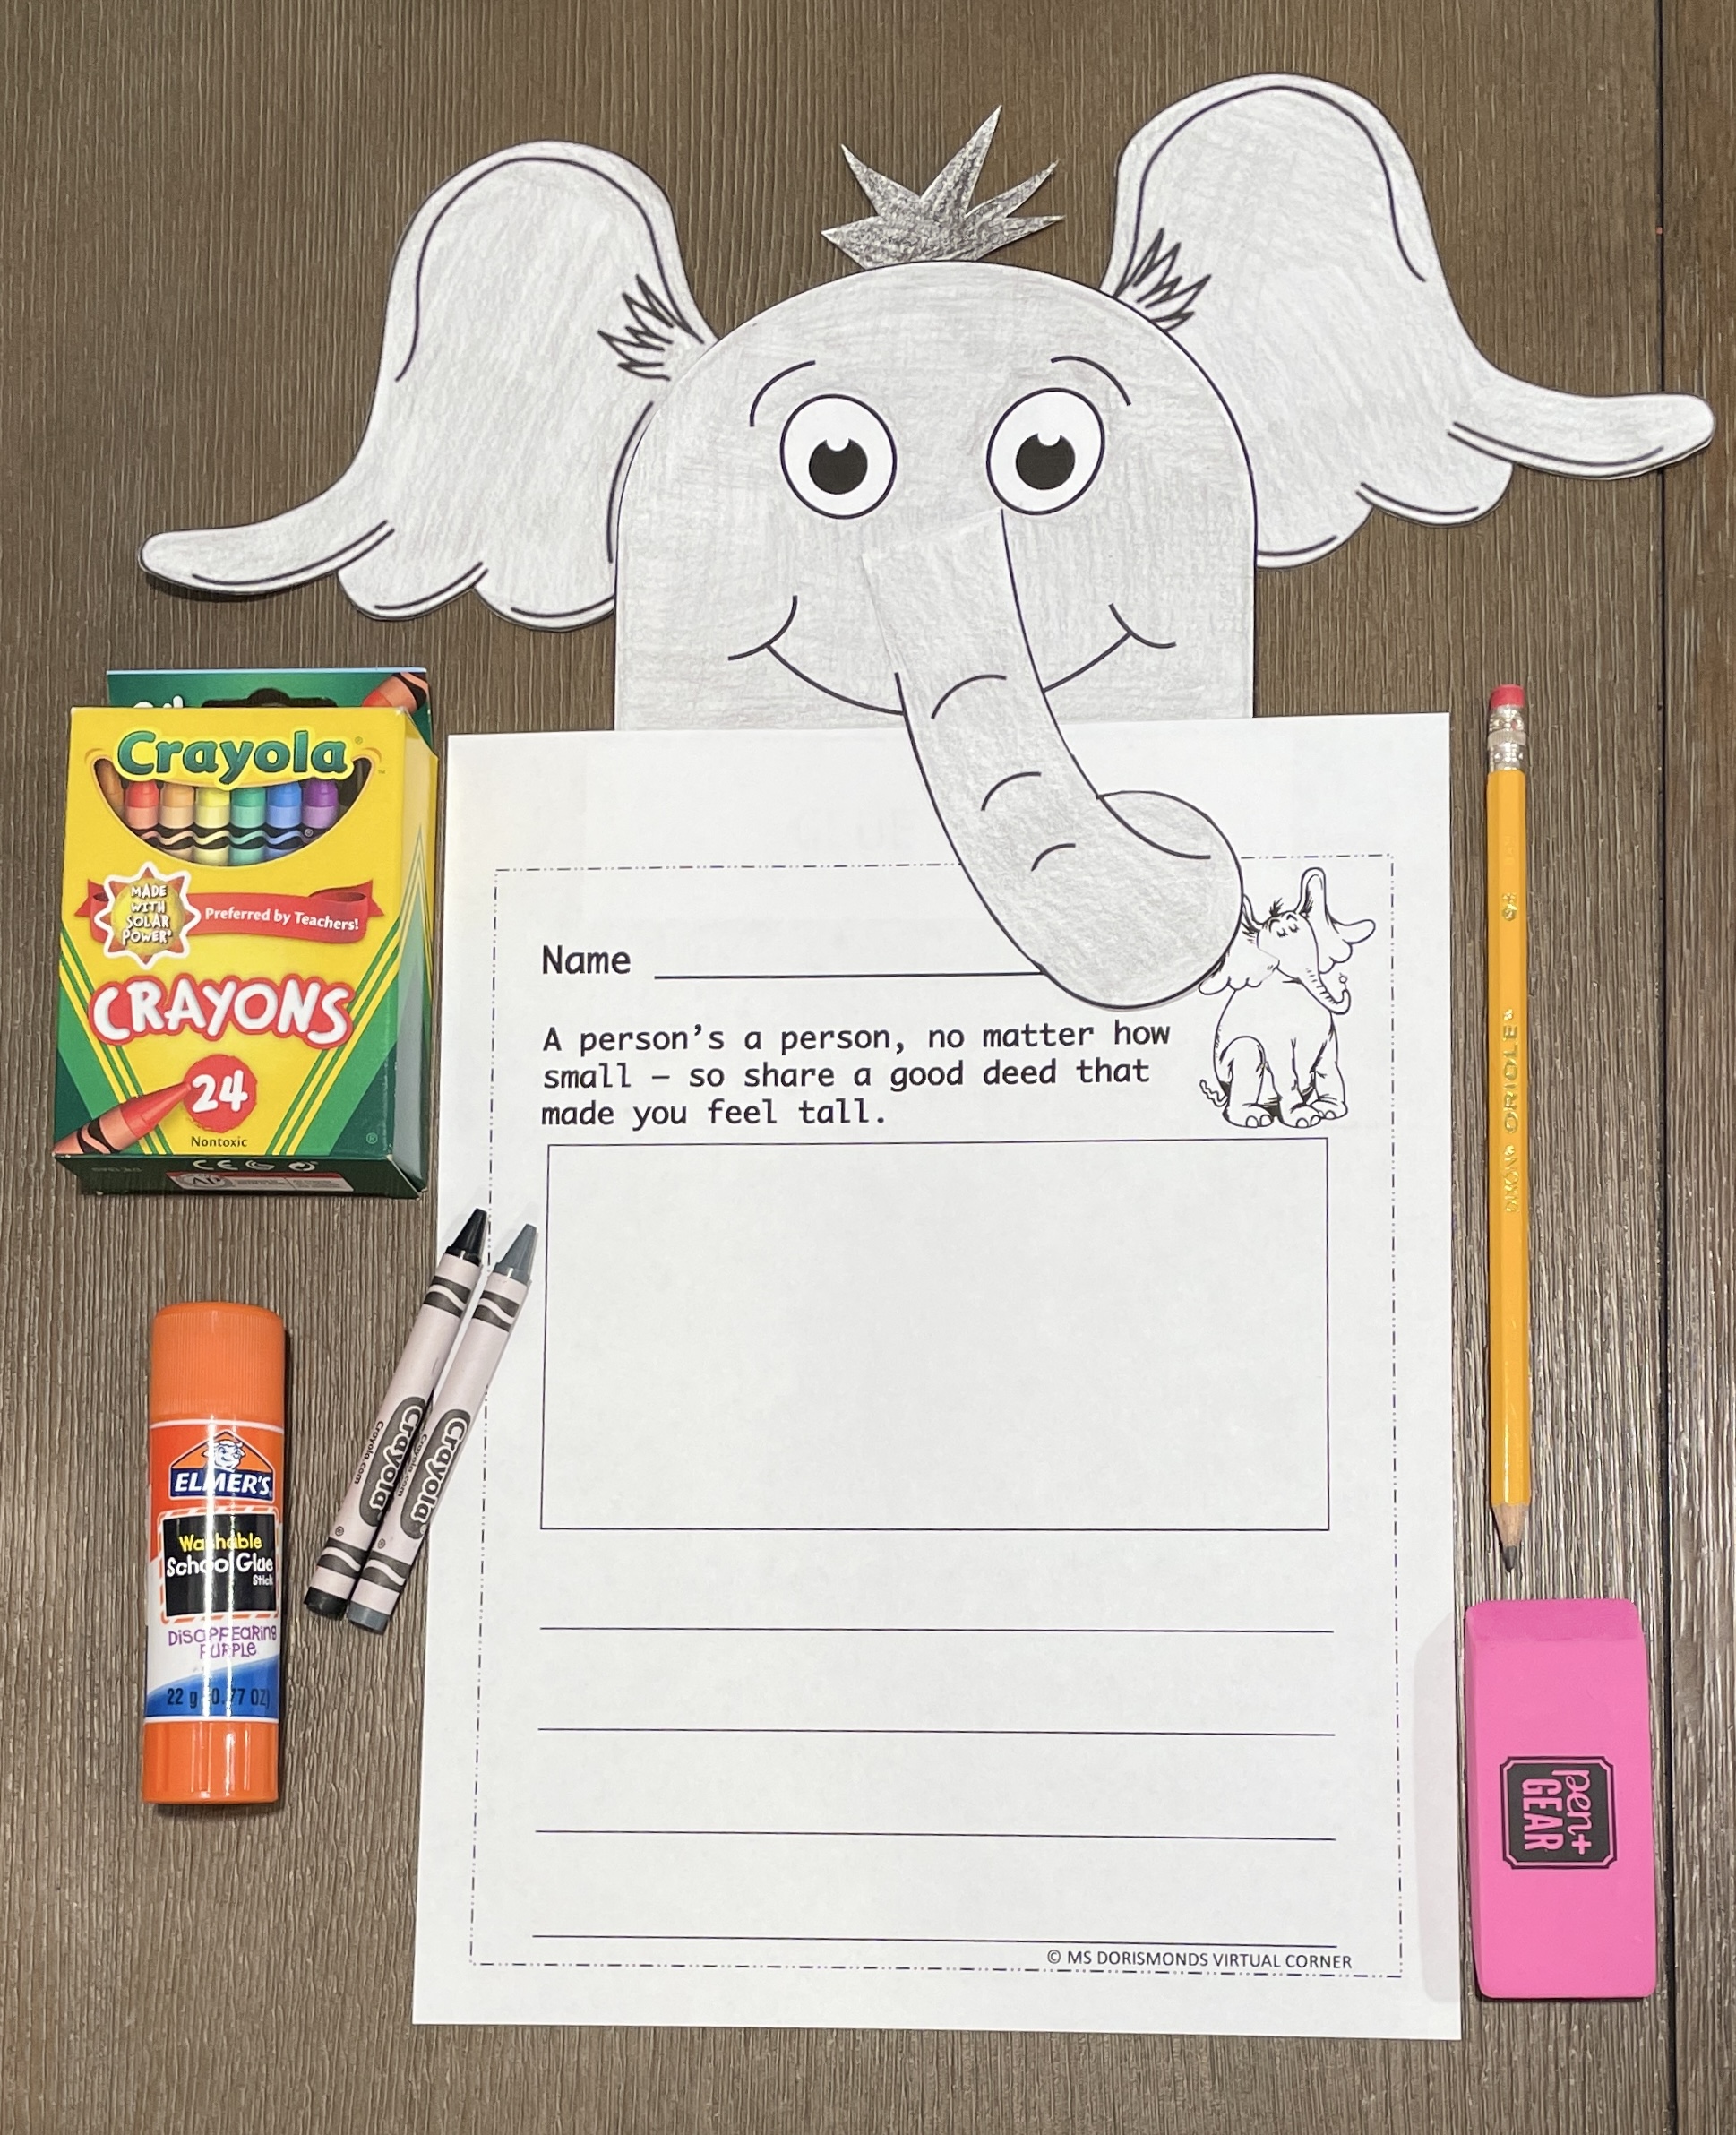 Crayola
MADE
WITH
SOLAR
POWER
Preferred by Teachers!
CRAYONS
24
Nontoxic
CE
Name
A person’s a person, no matter how
small – so share a good deed that
made you feel tall.
© MS DORISMONDS VIRTUAL CORNER
Crayola
Crayola.com
Crayola
Crayola.com
ELMER'S
Washable
School Glue
Stick
DISAPPEARING
PURPLE
22 g (0.77 OZ)
ORIOLE
pen+
GEAR